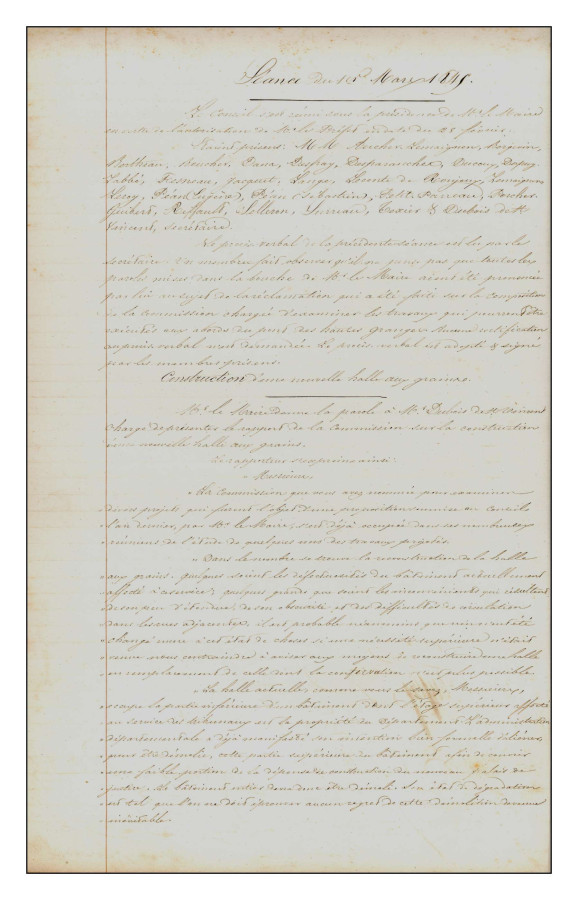 Séance du 15 Mars 1845.
Le Conseil s'est réuni sous la présidence de Mr le Maire
en vertu de l'autorisation de Mr le Préfet en date du 28 février.
Étaient présens: M.M.
Berthiau, Boucher, Dana, Desfray,
Labbé, Jacquet, Lange, Lecomte de
Leroy, Péan (Eugène), Péan (Sébastien), Petit
Guibert, Riffault, & Derbais de St
Vincent, secrétaire.
Le procès verbal de la précédente séance est lu par le
secrétaire. Un membre fait observer qu'il ne pense pas que toutes les
paroles mises dans la bouche de Mr le Maire aient été prononcées
par lui au sujet de la réclamation qui a été faite sur la composition
de la Commission chargée d'examiner les travaux qui pourront être
exécutés aux abords du pont des hautes granges. Aucune rectification
au procès verbal n'est demandée. Le procès verbal est adopté & signé
par les membres présens.
Construction d'une nouvelle halle aux grains.
Mr le Maire donne la parole à Mr Derbais de St Vincent
chargé de présenter le rapport de la Commission sur la construction
d'une nouvelle halle aux grains.
Le rapporteur s'exprime ainsi:
« Messieurs,
« La Commission que vous avez nommée pour examiner
divers projets qui furent l'objet d'une proposition soumise au Conseil
l'an dernier, par Mr le Maire, s'est déjà occupée dans ses nombreuses
réunions de l'étude de quelques uns des travaux projetés.
« Dans le nombre se trouve la reconstruction de la halle
aux grains. quelques soient les défectuosités du bâtiment actuellement
affecté à ce service, quelques grands que soient les inconvéniens qui résultent
de son peu d'étendue, de son obscurité et des difficultés de circulation
dans les rues adjacentes, il est probable néanmoins que rien n'eut été
changé à cet état de choses si une nécessité supérieure n'était
venue nous contraindre à aviser aux moyens de reconstruire une halle
en remplacement de celle dont la conservation n'est plus possible.
« La halle actuelle, comme vous le savez, Messieurs,
occupe la partie inférieure d'un bâtiment dont l'étage supérieur affecté
au service des tribunaux est la propriété du Département. L'administration
départementale a déjà manifesté son intention bien formelle
de démolir, cette partie supérieure du bâtiment afin de couvrir
une faible portion de la dépense de construction du nouveau Palais de
justice. Le bâtiment entier devra donc être démoli. Son état de dégradation
est tel que l'on ne doit éprouver aucun regret de cette démolition devenue
inévitable.